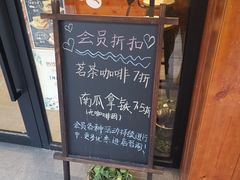 会员折扣
茗茶咖啡 7折
南瓜拿铁 7.5折
会员各种活动持续进行
中，更多优惠，进店咨询！